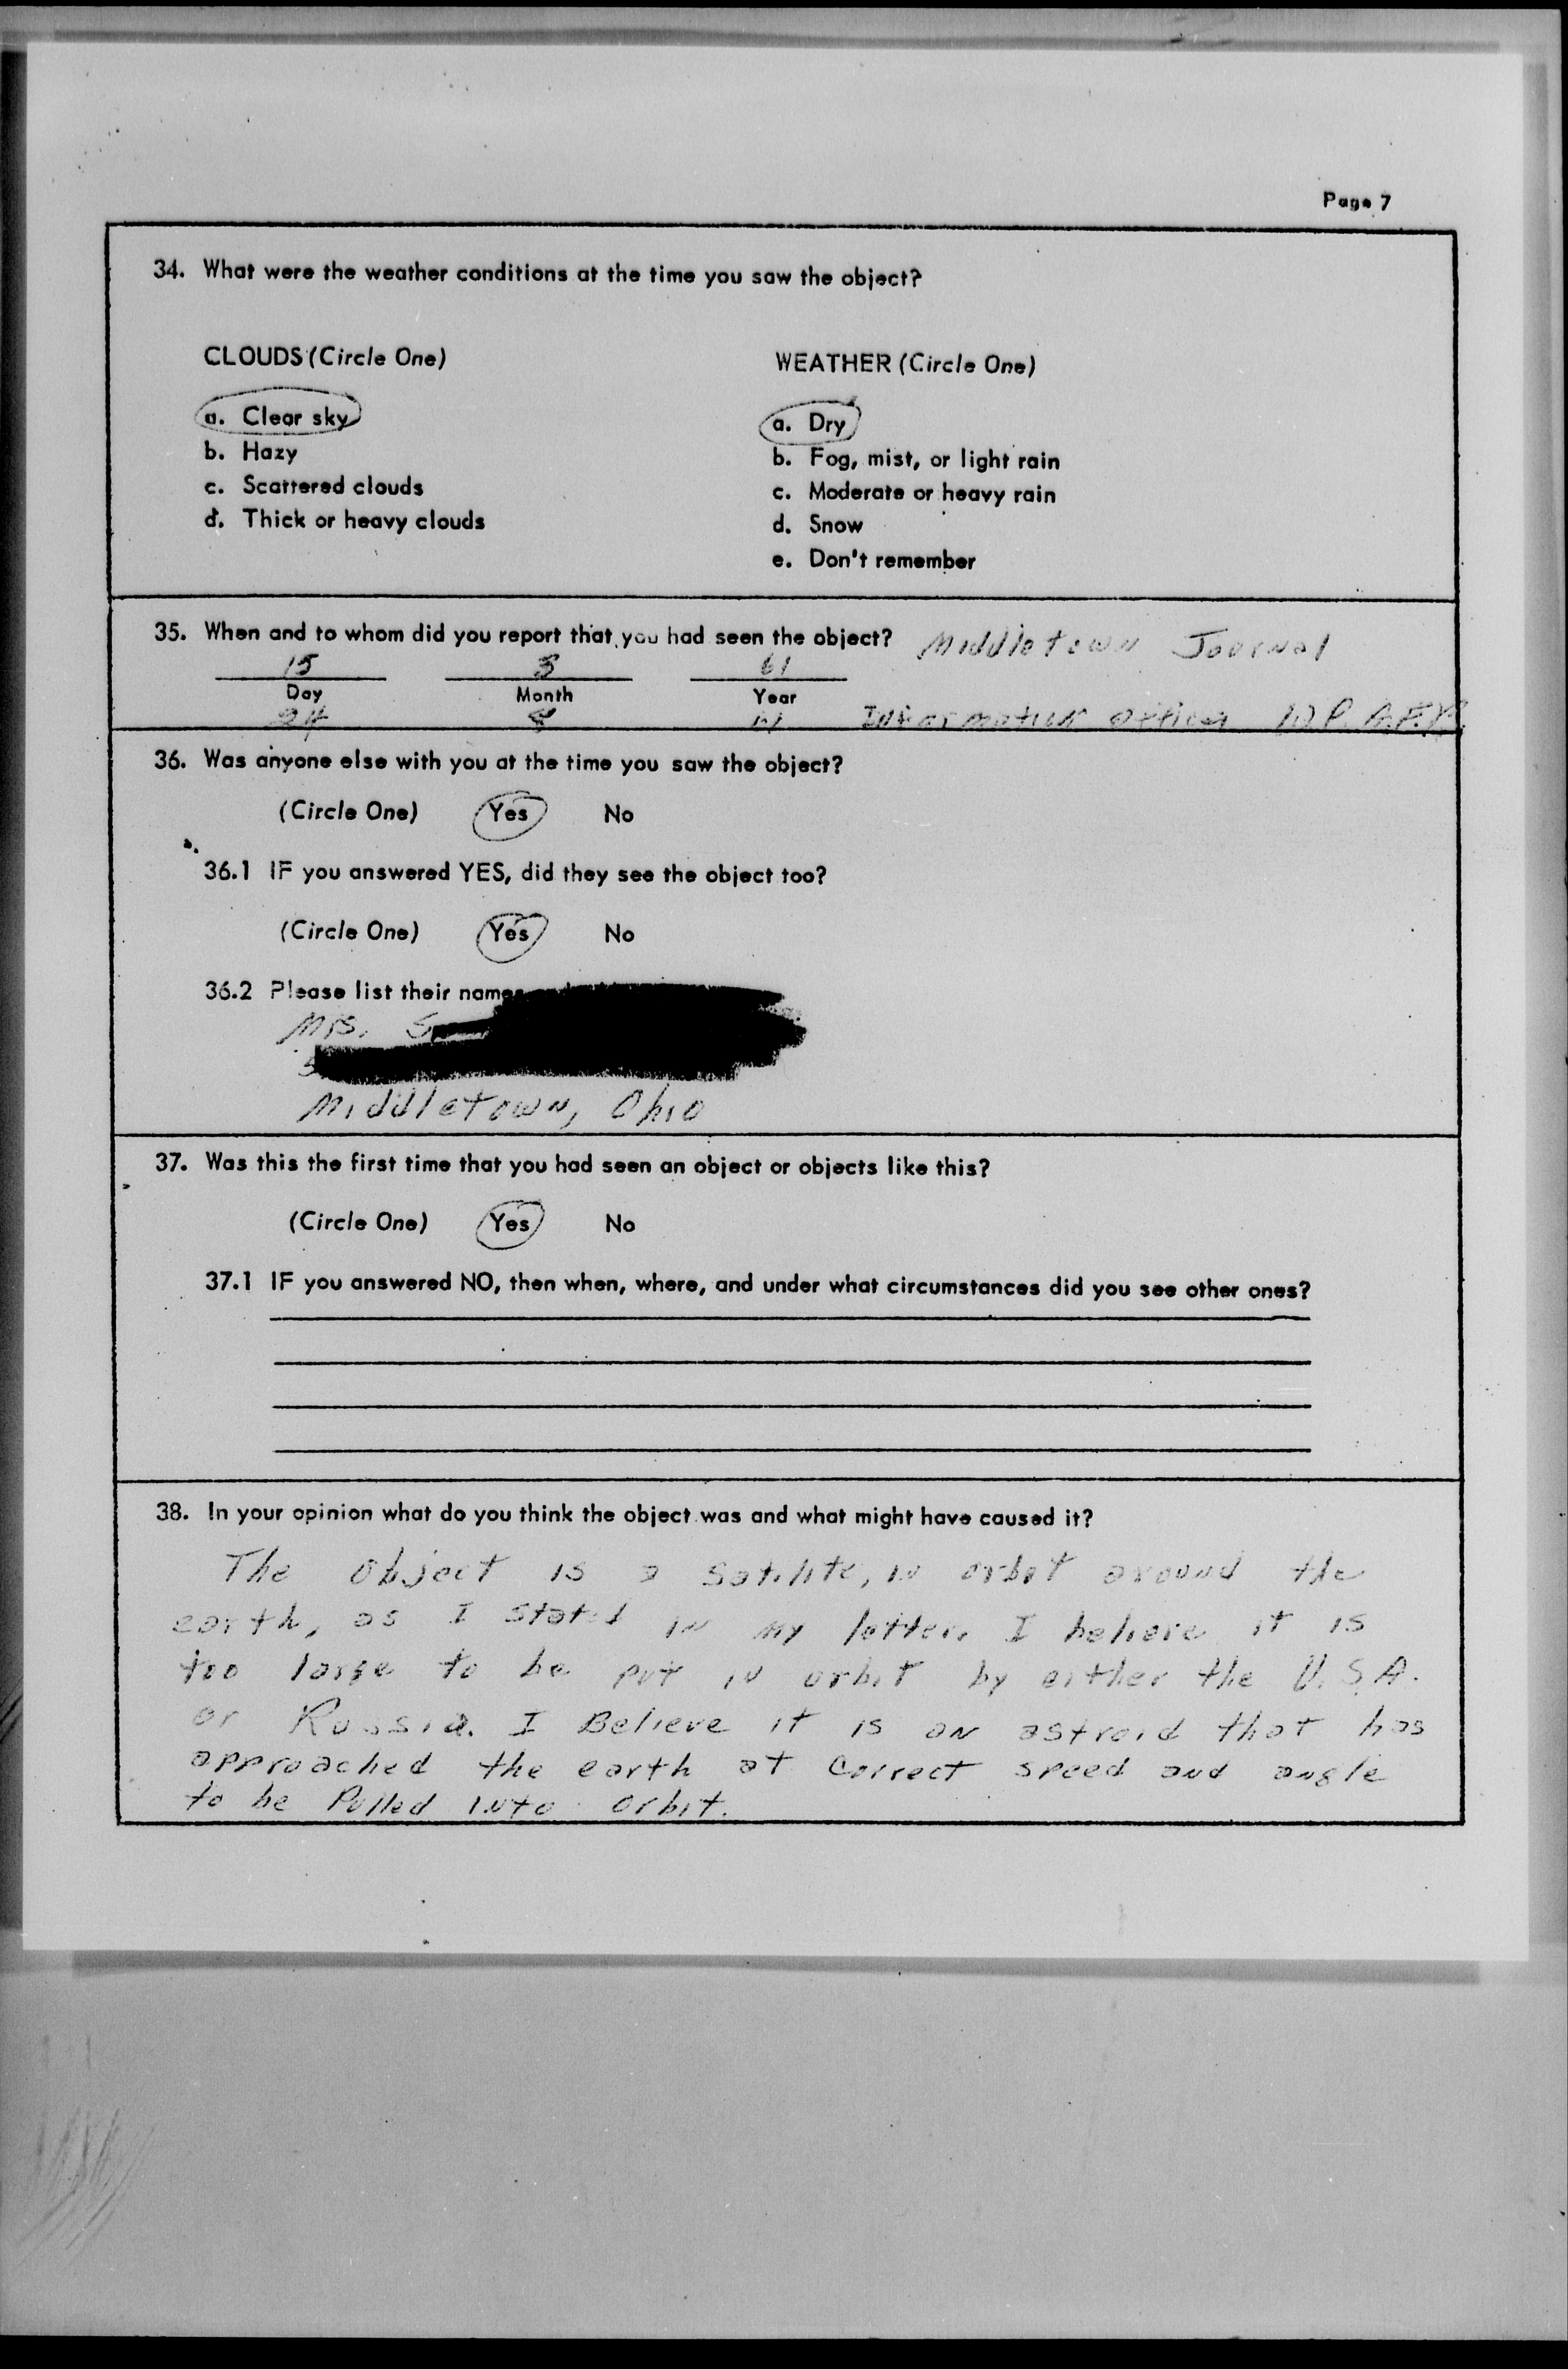 Page 7
34. What were the weather conditions at the time you saw the object?
CLOUDS (Circle One)
WEATHER (Circle One)
a. Clear sky
b. Hazy
c. Scattered clouds
d. Thick or heavy clouds
a. Dry
b. Fog, mist, or light rain
c. Moderate or heavy rain
d. Snow
e. Don't remember
35. When and to whom did you report that you had seen the object? Middletown Journal
15 61
Day Month Year
24 61 Information Officer W.P.A.F.B.
36. Was anyone else with you at the time you saw the object?
(Circle One) Yes No
36.1 IF you answered YES, did they see the object too?
(Circle One) Yes No
36.2 Please list their names
Mrs.
Middletown, Ohio
37. Was this the first time that you had seen an object or objects like this?
(Circle One) Yes No
37.1 IF you answered NO, then when, where, and under what circumstances did you see other ones?
38. In your opinion what do you think the object was and what might have caused it?
The object is a satilite, in orbit around the
earth, as I stated in my letter. I believe it is
too large to be put in orbit by either the U.S.A.
or Russia. I Believe it is an astroid that has
approached the earth at correct speed and angle
to be Pulled into orbit.